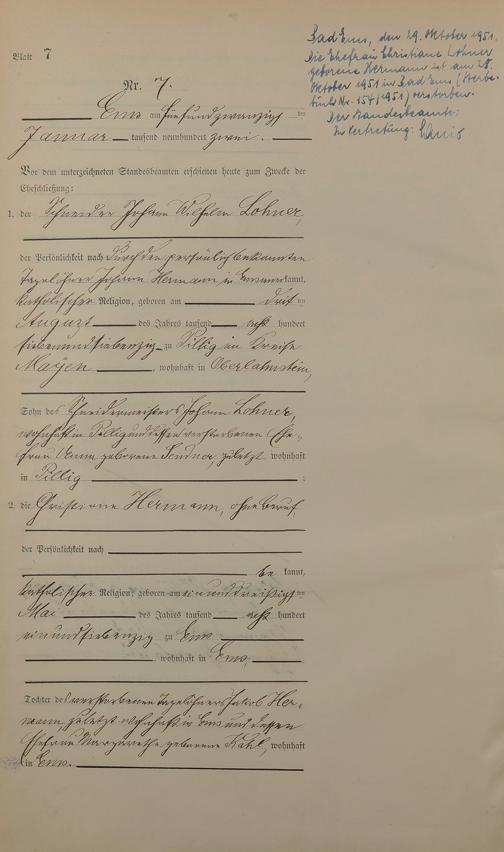 Blatt 7
Bad Ems, den 29. Oktober 1951.
Die Ehefrau Christiane Lohner
geborene Hermann ist am 28.
Oktober 1951 in Bad Ems (Sterbe-
buch Nr. 154/1951) verstorben.
Der Standesbeamte:
In Vertretung:
Nr. 7.
Ems am fünfundzwanzigsten
Januar tausend neunhundert zwei.
Vor dem unterzeichneten Standesbeamten erschienen heute zum Zwecke der
Eheschließung:
1. der Schneider Johann Wilhelm Lohner,
der Persönlichkeit nach durch den persönlich bekannten
Tagelöhner Johann Hermann in Ems anerkannt,
katholischer Religion, geboren am dritten
August des Jahres tausend acht hundert
siebenundsiebenzig zu Pillig im Kreise
Mayen, wohnhaft in Oberlahnstein,
Sohn des Schneidermeisters Johann Lohner,
wohnhaft in Pillig und dessen verstorbenen Ehe-
frau Anna geborene zuletzt wohnhaft
in Pillig;
2. die Christiane Hermann, ohne Beruf,
der Persönlichkeit nach
bekannt,
katholischer Religion, geboren am einunddreißigsten
Mai des Jahres tausend acht hundert
einundsiebenzig zu Ems
, wohnhaft in Ems,
Tochter des verstorbenen Tagelöhners Jakob Her-
mann, zuletzt wohnhaft in Ems und dessen
Ehefrau Margarethe geborene Kahl, wohnhaft
in Ems.